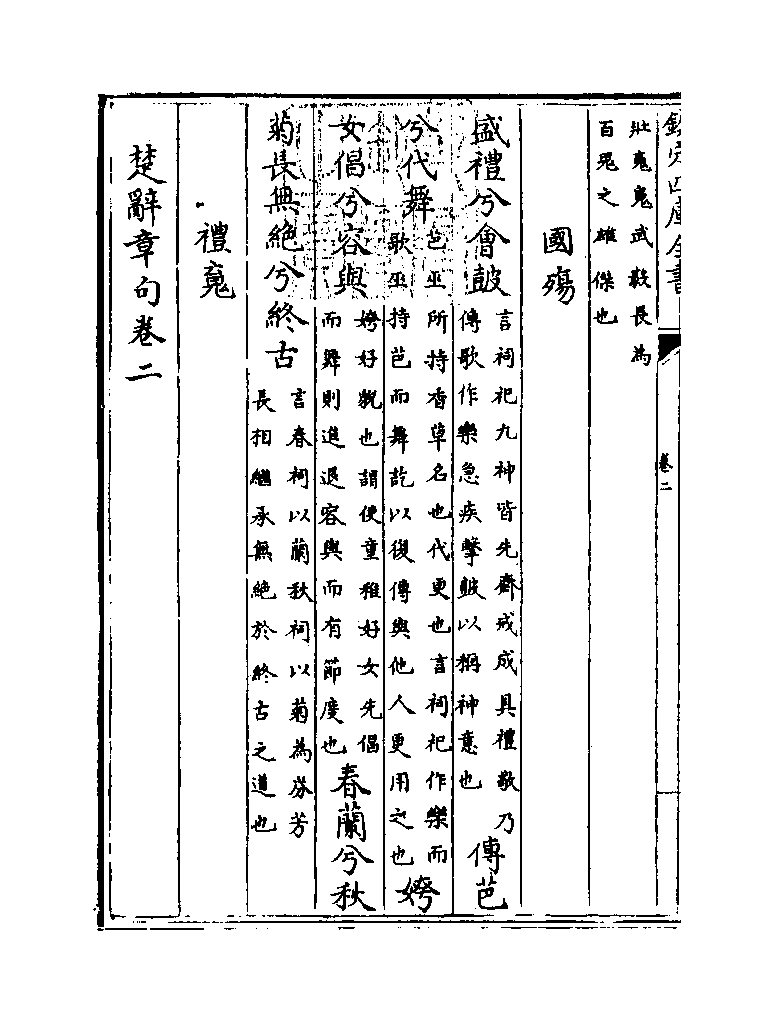 欽定四庫全書 卷二
壯䰟䰟武毅長為
百鬼之雄傑也
國殤
盛禮兮會鼓
言祠祀九神皆先齋戒成具禮敬乃
傳歌作樂急疾擊鼓以稱神意也
傳芭
兮代舞
芭巫所持香草名也代更也言祠祀作樂而
歌巫持芭而舞訖以復傳與他人更用之也
姱
女倡兮容與
姱好貌也謂使童稚好女先倡
而舞則進退容與而有節度也
春蘭兮秋
菊長無絶兮終古
言春祠以蘭秋祠以菊為芬芳
長相繼承無絶於終古之道也
禮䰟
楚辭章句卷二